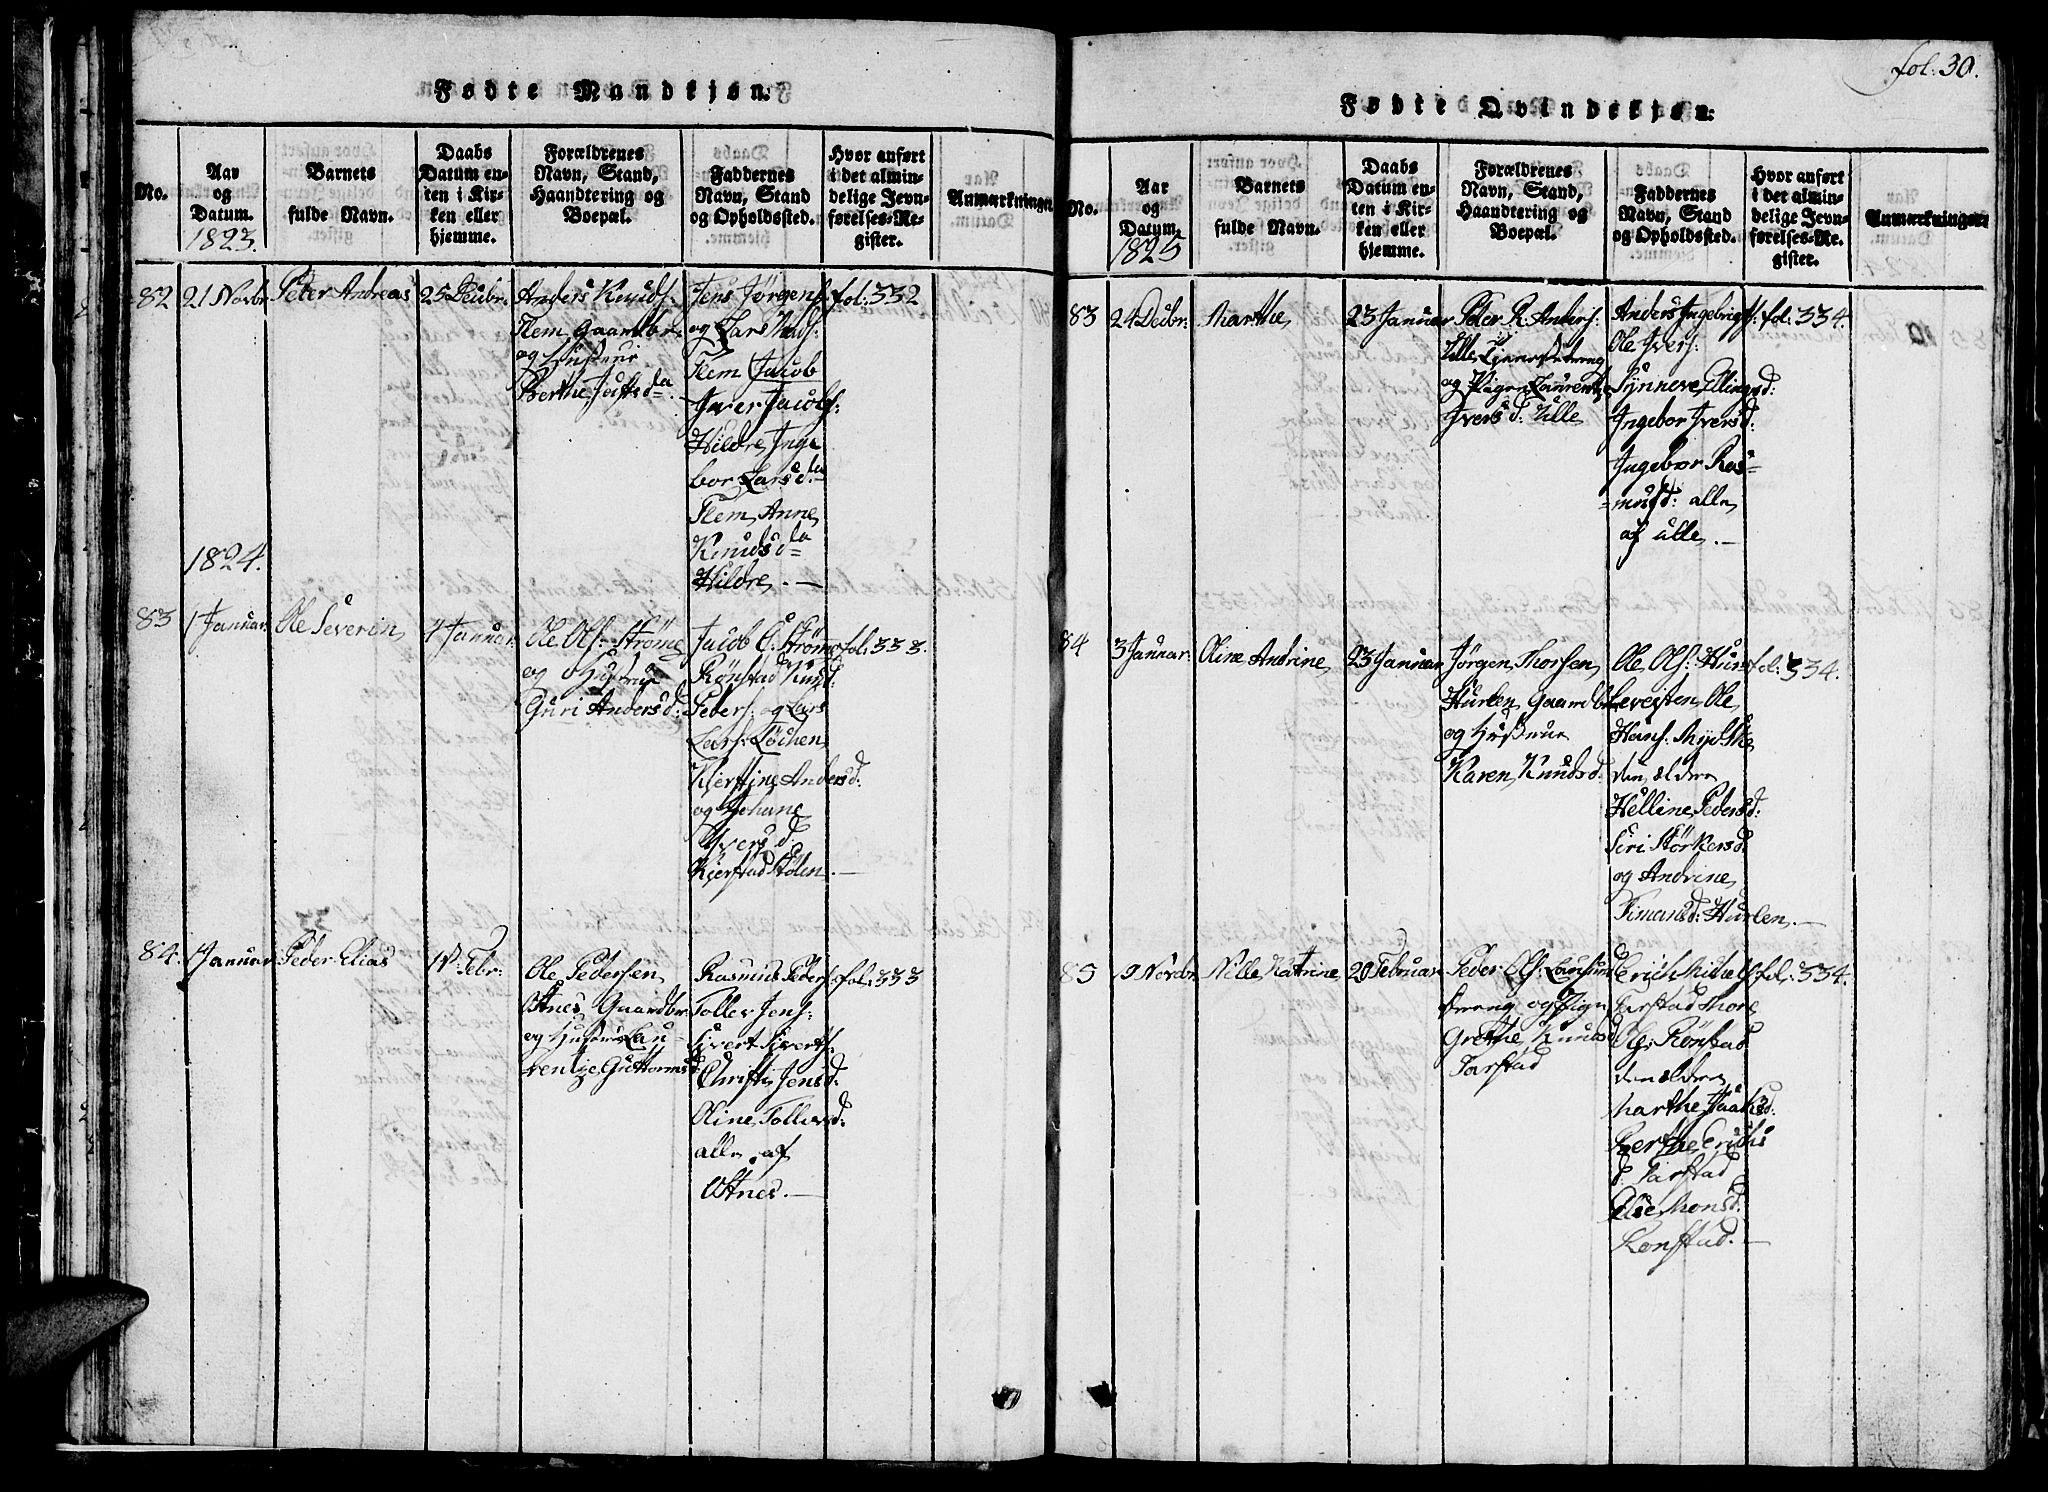 fol: 30.
Fødte Mandkjøn.
No.
Aar
og
Datum.
1823.
Barnets
fulde Navn.
Daabs
Datum en-
ten i Kir-
ken eller
hjemme.
Forældrenes
Navn, Stand,
Haandtering og
Boepæl.
Faddernes
Navn, Stand
og Opholdssted.
Hvor anført
i det almin-
delige Jevn-
førelses-Re-
gister.
Anmærkninger
82
21 Novbr
Peter Andreas
25 Decbr.
Anders Knuds:
Flem gaardbr.
og Hustrue
Berthe
Jens Jørgens:
og Lars
Flem Jacob
Iver Jacobs:
Hildre Inge
bor Larsd.
Flem, Anne
Knudsd
Hildre. —
fol: 332
1824.
83
1 Januar.
Ole Severin
4 Januar.
Ole Ols: Strømme
og Hustrue
Guri Andersd:
Jacob E. Strømme
Rønstad Knud
Peders: og Lars
Lars: Løchen
Kierstine Andersd:
og Johane
Iversd.
Kierstad Stølen. —
fol: 333.
84.
1 Januar
Peder Elias
1ste Febr:
Ole Pedersen
Otnes Gaardbr.
og Hustrue Lau-
rentze Guttormsd
Rasmus Peders
Toller Jens:
Sivert Siverts:
Jensd:
Oline Tollevsd:
alle af
Otnes. —
fol: 333
Fødte Qvindekjøn.
No.
Aar
og
Datum.
1823
Barnets
fulde Navn.
Daabs
Datum en-
ten i Kir-
ken eller
hjemme.
Forældrenes
Navn, Stand,
Haandtering og
Boepæl.
Faddernes
Navn, Stand
og Opholdssted.
Hvor anført
i det almin-
delige Jevn-
førelses-Re-
gister.
Anmærkninger
83
24 Decbr:
Marthe
23 Januar
Peter R. Anders:
Ulle
og Pigen Laurentze
Iversd: Ulle
Anders Ingebrigts:
Ole Ivers:
Synneve Ellingsd:
Ingebor Iversd:
Ingebor Ras-
musd: alle
af Ulle. —
fol: 334.
84
3 Januar:
Oline Andrine
23 Januar
Jørgen Thorsen
Hurlen gaardbr
og Hustrue
Karen Knudsd:
Ole Ols:
Ole
Hans:
den ældre
Helline Pedersd:
Siri Størkersd:
og Andrine
Simensd: Hurlen. —
fol: 334.
85
9 Novbr.
Nille Katrine
20 Februar
Peder Ols:
dreng og Pigen
Grethe Knudsd
Tarstad
Erich Michels
Tarstad Thore
Ols: Rønstad
den ældre
Marthe
Berthe Erichs
d: Tarstad
Else Monsd:
Rønstad. —
fol: 334.